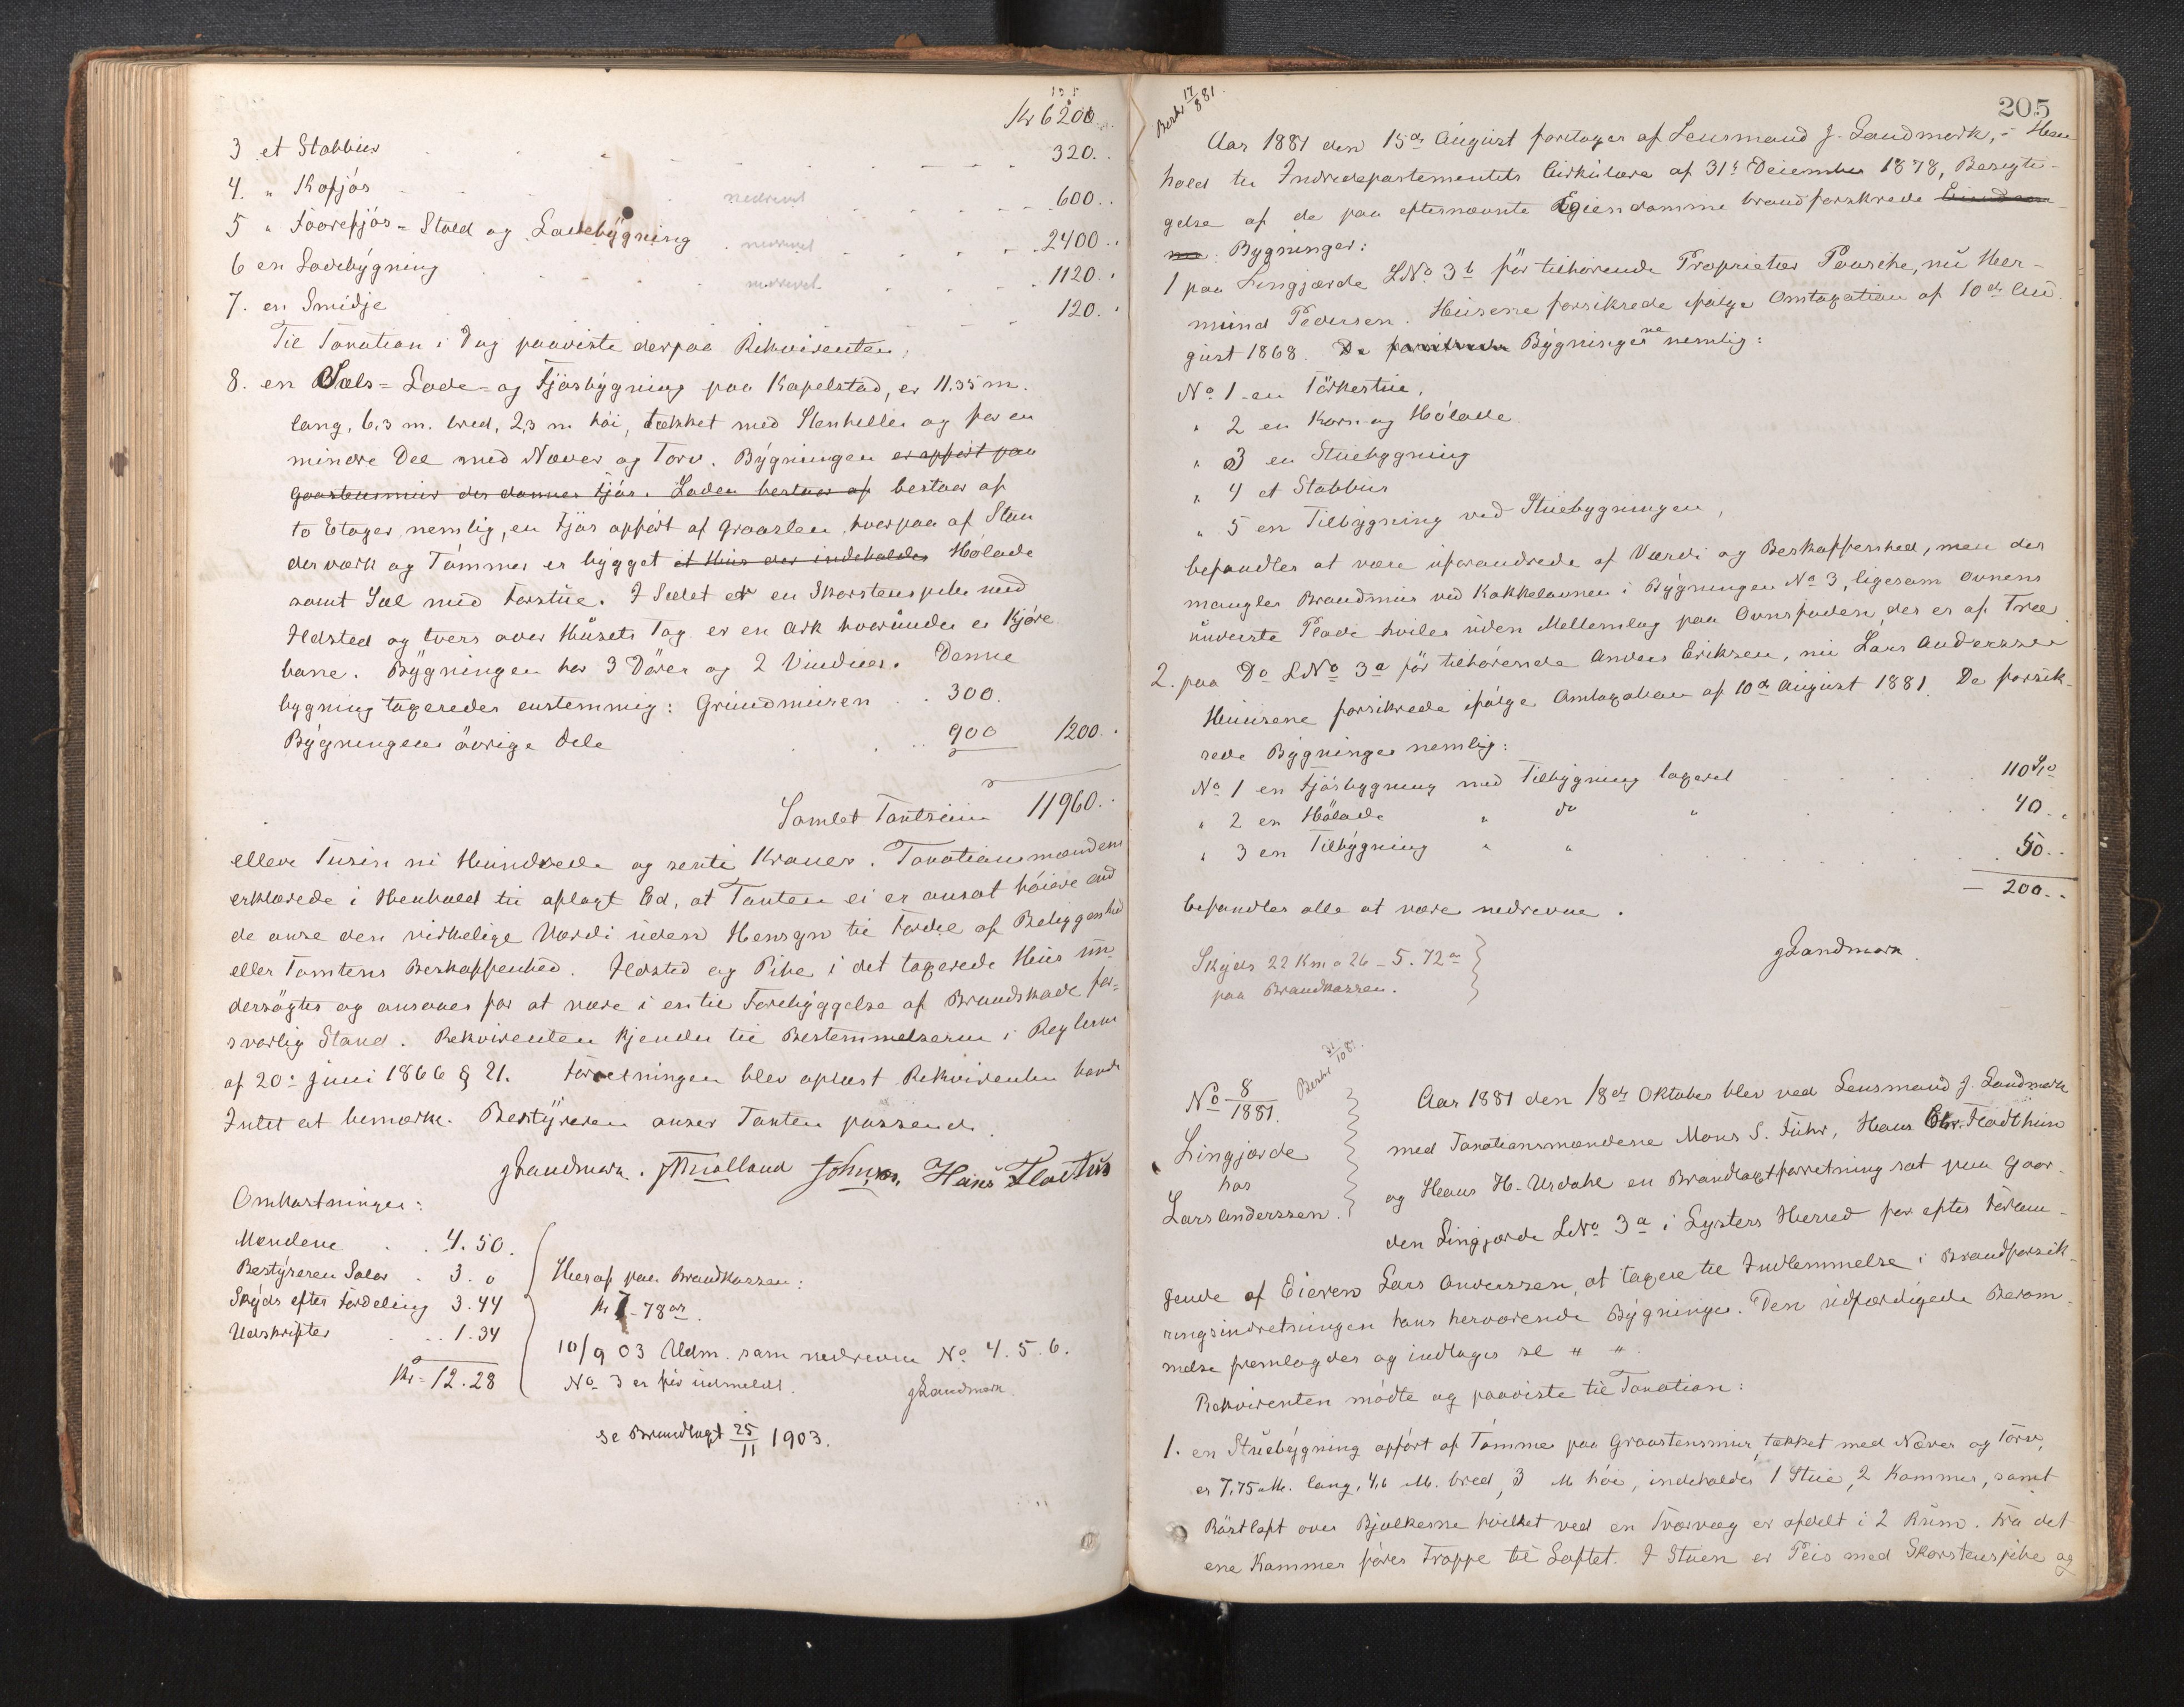 Kr 6200.
3 et Stabbur 320.
4. " Kofjös nedrevet 600.
5 " Faarefjös= Stald og Ladebygning nedrevet 2400.
6 en Ladebygning nedrevet 1120.
7. en Smidje 120.
Til Taxation i Dag paaviste derpaa Rekvirenten:
8. en Sæls= Lade= og Fjösbygning paa Kapelstad, er 11.35 m.
lang, 6,3 m. bred, 2,3 m höi, tækket med Stenheller og for en
mindre Del med Næver og Torv. Bygningen er opfört paa
Graastensmur der danner Fjös. Laden bestaar af bestaar af
to Etager, nemlig, en Fjös opfört af Graasten, hvorpaa af Sten
derværk og Tömmer er bygget et Hus der indeholder Hölade
samt Sæl med Forstue. I Sælet er en Skorstenspibe med
Ildsted og tvers over Husets Tag er en Ark hvorunder er Kjöre
bane. Bygningen har 3 Döre og 2 Vinduer. Denne
bygning taxeredes enstemmig: Grundmuren 300.
Bygningens övrige Dele 900 1200.
Samlet Taxtsum 11960.
elleve Tusin ni Hundrede og sexti Kroner. Taxationsmændene
erklærede i Henhold til aflagt Ed, at Taxten ei er ansat höiere end
de anse den virkelige Værdi uden Hensyn til Fordel af Beliggenhed
eller Tomtens Beskaffenhed. Ildsted og Pibe i det taxerede Hus un-
dersögtes og ansaaes for at være i en til Forebyggelse af Brandskade for=
svarlig Stand. Rekvirenten kjender til Bestemmelserne i Reglerne
af 20: Juni 1866 § 21. Forretningen blev oplæst Rekvirenten havde
Intet at bemærke. Bestyreren anser Taxten passende.
JLandmark. Hans Flattun
Omkostninger:
Mændene 4.50.
Bestyreren Salar 3.0
Skyds efter Fordeling 3.44
Udskrifter 1.34
Kr. 12.28
Heraf paa Brandkassen:
10/9 03 Udm. som nedrevne No. 4.5.6.
No 3 er her udmeldt. JLandmark
se Brandtagt 25/11 1903.
205
Beskr 17/8 81.
Aar 1881 den 15de August foretoges af Lensmand J. Landmark, i Hen
hold til Indredepartementets Cirkulære af 31te December 1878, Besigti-
gelse af de paa efternævnte Egiendomme brandforsikrede Eiendom
me. Bygninger:
1 paa Lingjærde LNo. 3b för tilhörende Proprietær Paasche, nu Her-
mund Pedersen. Husene forsikrede ifölge Omtaxation af 10de Au
gust 1868. De forsikrede Bygningerne nemlig:
No 1 en Törkestue,
" 2 en Korn- og Hölade
" 3 en Stuebygning
" 4 et Stabbur
" 5 en Tilbygning ved Stuebygningen,
befandtes at være uforandrede af Værdi og Beskaffenhed, men der
mangler Brandmur ved Kakkelovnen i Bygningen No 3, ligesom Ovnens
underste Plade hviler uden Mellemlag paa Ovnsfoden, der er af Træ.
2. paa Do LNo 3a för tilhörende Anders Eriksen, nu Lars Anderssen
Husene forsikrede ifölge Omtaxation af 10de August 1881. De forsik-
rede Bygninger nemlig:
No 1 en Fjösbygning med Tilbygning taxeret 110 Spd
" 2 en Hölade " do " 40.
" 3 en Tilbygning " " 50.
200.
befandtes alle at være nedrevne.
JLandmark.
Skyds 22 Km a 26 - 5.72 ør
paa Brandkassen.
Beskr 31/10 81.
No 8/1881.
Lingjærde
hos
Lars Anderssen.
Aar 1881 den 18de Oktober blev ved Lensmand J. Landmark
med Taxationsmændene Mons S. Fuhr, Hans Chr. Fladthun
og Hans H. Urdahl en Brandtaxtforretning sat paa Gaar-
den Lingjærde LNo 3a i Lysters Herred for efter Forlan-
gende af Eieren Lars Anderssen, at taxere til Indlemmelse i Brandforsik-
ringsindretningen hans herværende Bygninger. Den udfærdigede Beram-
melse fremlagdes og indtages sl " "
Rekvirenten mödte og paaviste til Taxation:
1. en Stuebygning opfört af Tömmer paa Graastensmur, tækket med Næver og Torv,
er 7,75 M. lang, 4,6 M. bred, 3 M höi, indeholder 1 Stue, 2 Kammer, samt
Röstloft over Bjelkerne hvilket ved en Tværvæg er afdelt i 2 Rum. Fra det
ene Kammer förer Trappe til Loftet. I Stuen er Peis med Skorstenspibe og